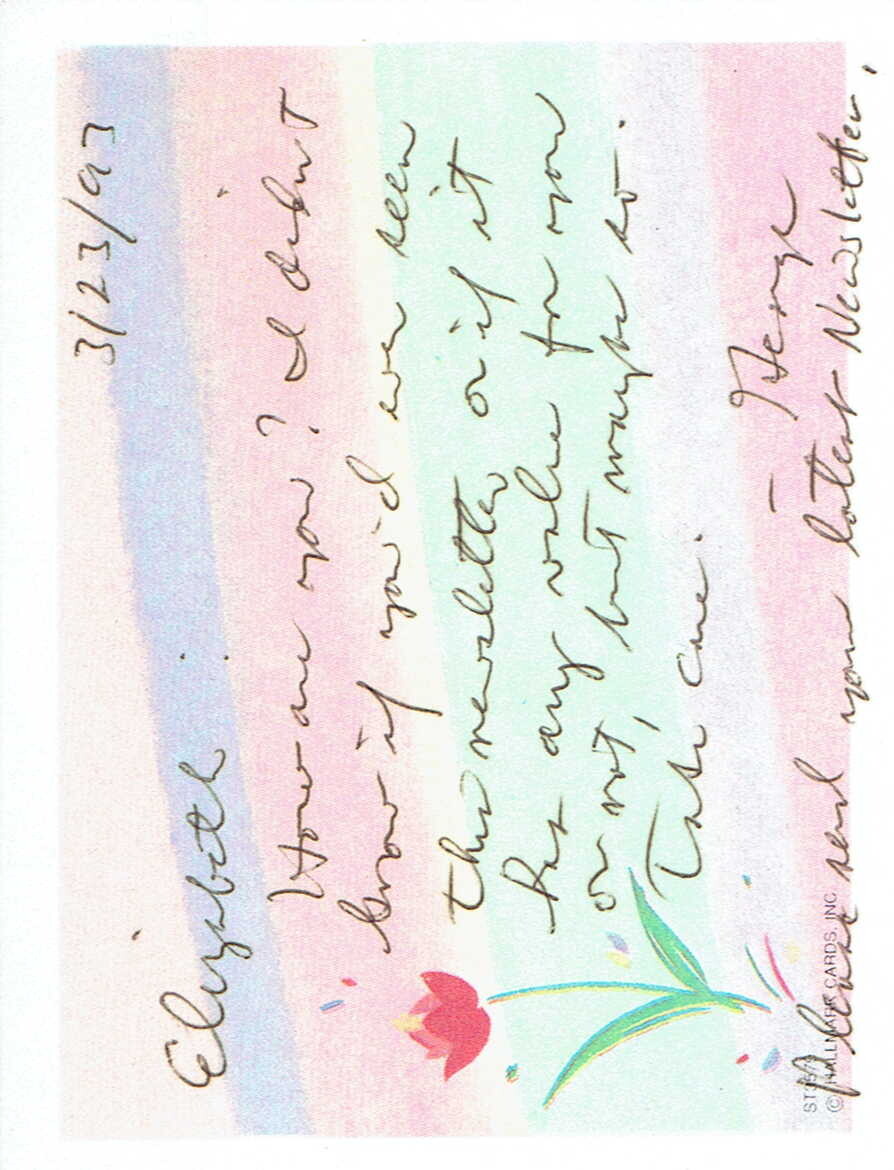 3/23/93
Elizabeth
How are you? I didn't
know if you'd ever seen
this newsletter or if it
has any value for you
or not, but maybe so.
Take care.
—
Please send you latest Newsletter.
© HALLMARK CARDS, INC